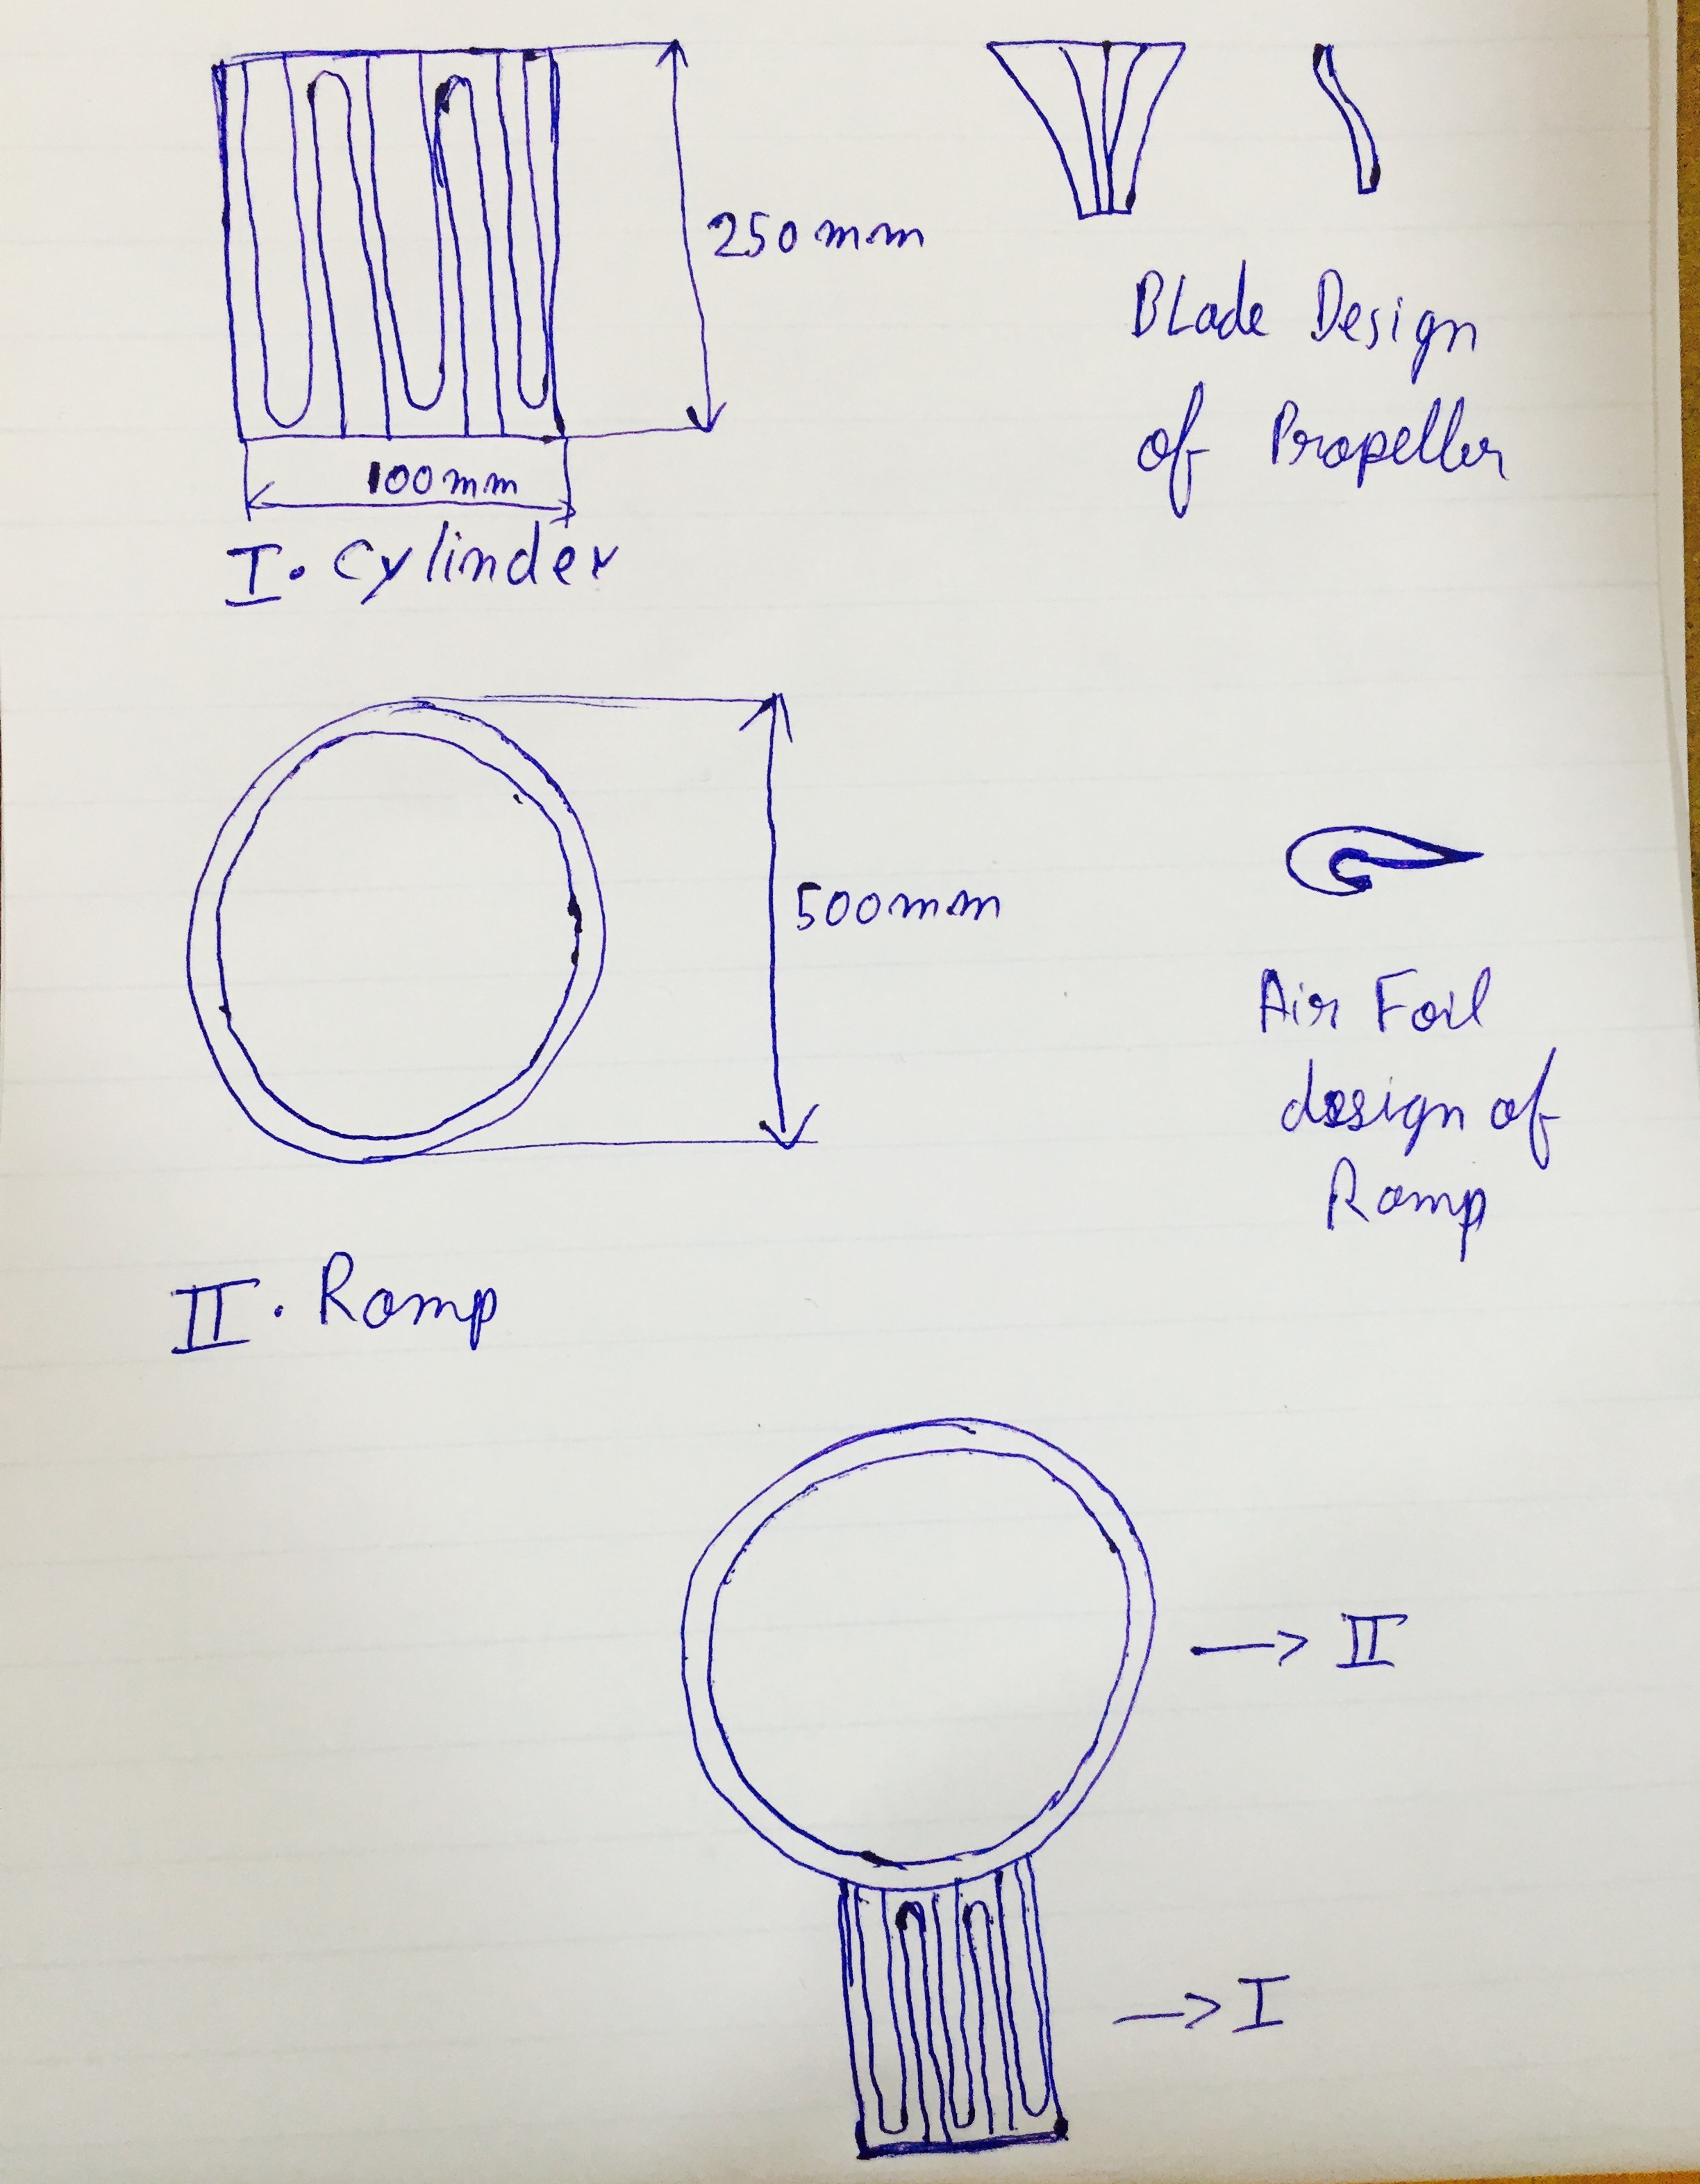 250mm
100mm
I. Cylinder
BLade Design
of Propeller
500mm
Air Foil
design of
Ramp
II. Ramp
→ II
→ I